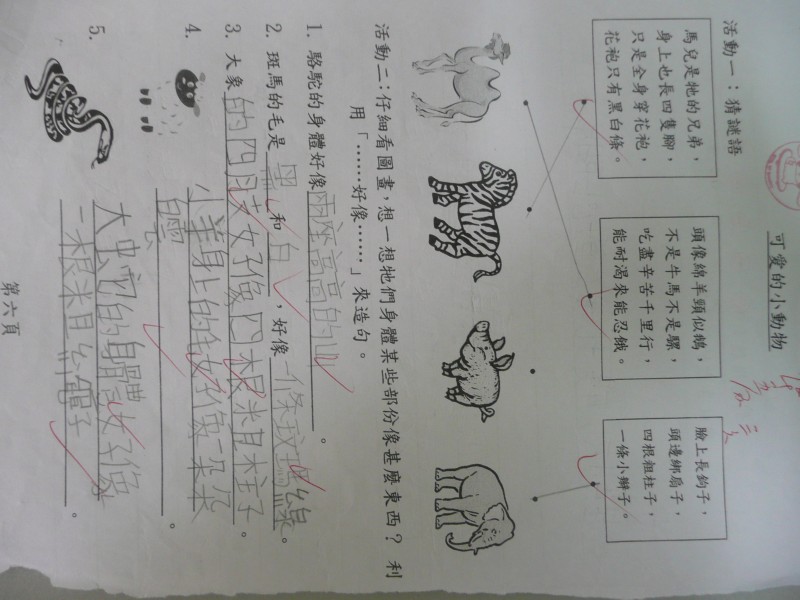 可愛的小動物
活動一：猜謎語
馬兒是牠的兄弟，
身上也長四隻腳，
只是全身穿花袍，
花袍只有黑白條。
頭像綿羊頸似鵝，
不是牛馬不是騾，
吃盡辛苦千里行，
能耐渴來能忍餓。
臉上長鉤子，
頭邊綁扇子，
四根粗柱子，
一條小辮子。
活動二：仔細看圖畫，想一想牠們身體某些部份像甚麼東西？利
用「……好像……」來造句。
1. 駱駝的身體好像兩座高高的山。
2. 斑馬的毛是黑和白，好像一條斑馬線。
3. 大象的四肢好像四根粗柱子。
4. 小羊身上的毛好像一朵朵
白雲。
5. 大蛇的身體好像
一根粗繩子。
第六頁